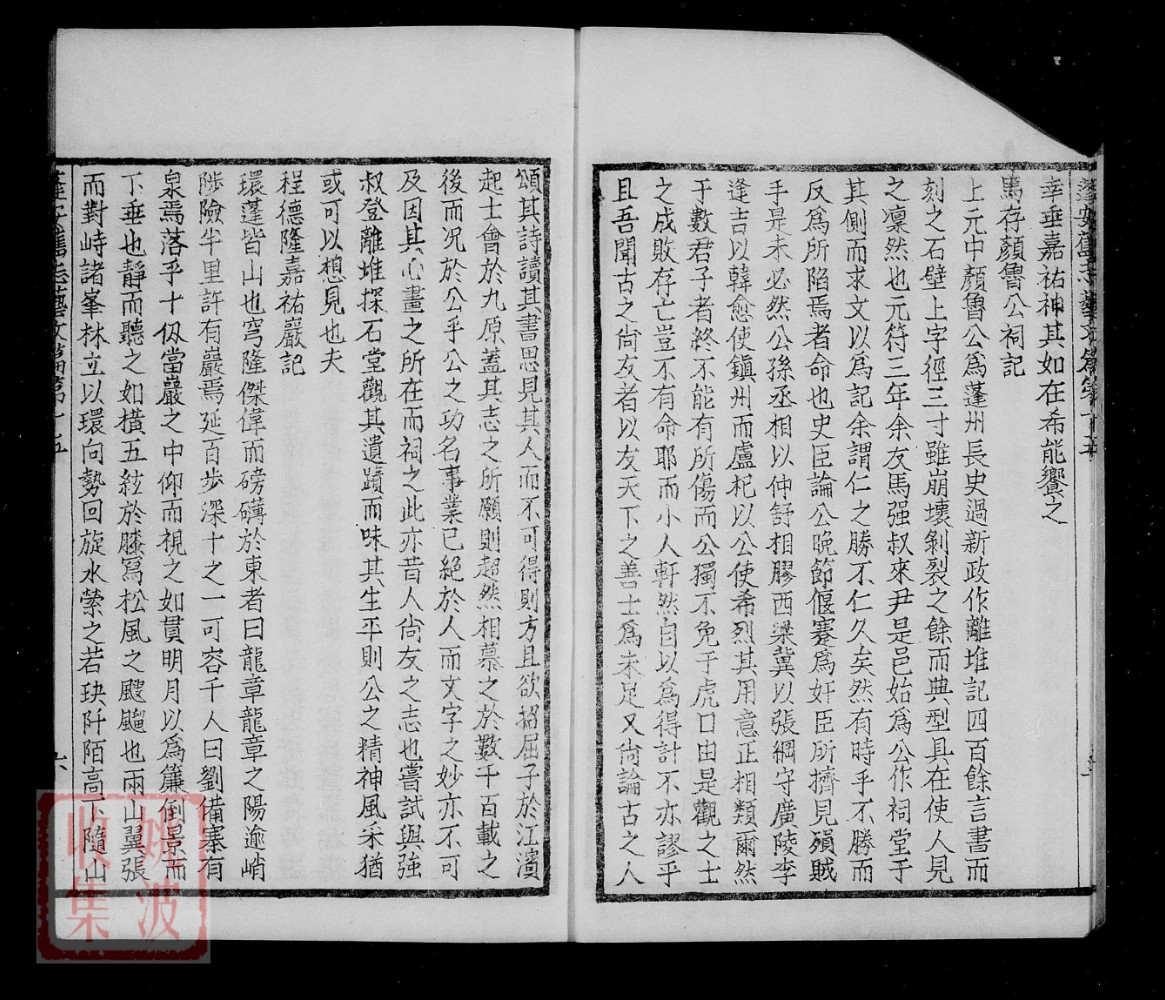 蓬安舊志藝文篇第十五
幸垂嘉祐神其如在希能饗之
馬存顏魯公祠記
上元中顏魯公爲蓬州長史過新政作離堆記四百餘言書而
刻之石壁上字徑三寸雖崩壞剝裂之餘而典型具在使人見
之凜然也元符三年余友馬强叔來尹是邑始爲公作祠堂于
其側而求文以爲記余謂仁之勝不仁久矣然有時乎不勝而
反爲所陷焉者命也史臣論公晚節偃蹇爲奸臣所擠見殞賊
手是未必然公孫丞相以仲舒相膠西梁冀以張綱守廣陵李
逢吉以韓愈使鎮州而盧杞以公使希烈其用意正相類爾然
于數君子者終不能有所傷而公獨不免于虎口由是觀之士
之成敗存亡豈不有命耶而小人軒然自以爲得計不亦謬乎
且吾聞古之尙友者以友天下之善士爲未足又尙論古之人
頌其詩讀其書思見其人而不可得則方且欲招屈子於江濱
起士會於九原蓋其志之所願則超然相慕之於數千百載之
後而况於公乎公之功名事業已絕於人而文字之妙亦不可
及因其心畫之所在而祠之此亦昔人尙友之志也嘗試與强
叔登離堆探石堂觀其遺蹟而味其生平則公之精神風采猶
或可以想見也夫
程德隆嘉祐巖記
環蓬皆山也穹隆傑偉而磅礡於東者曰龍章龍章之陽逾峭
陟險半里許有巖焉延百步深十之一可容千人曰劉備寨有
泉焉落乎十仭當巖之中仰而視之如貫明月以爲簾倒景而
下垂也靜而聽之如橫五絃於膝寫松風之飀飀也兩山翼張
而對峙諸峯林立以環向勢回旋水縈之若玦阡陌高下隨山
蓬安舊志藝文篇第十五
六
姚波
收集